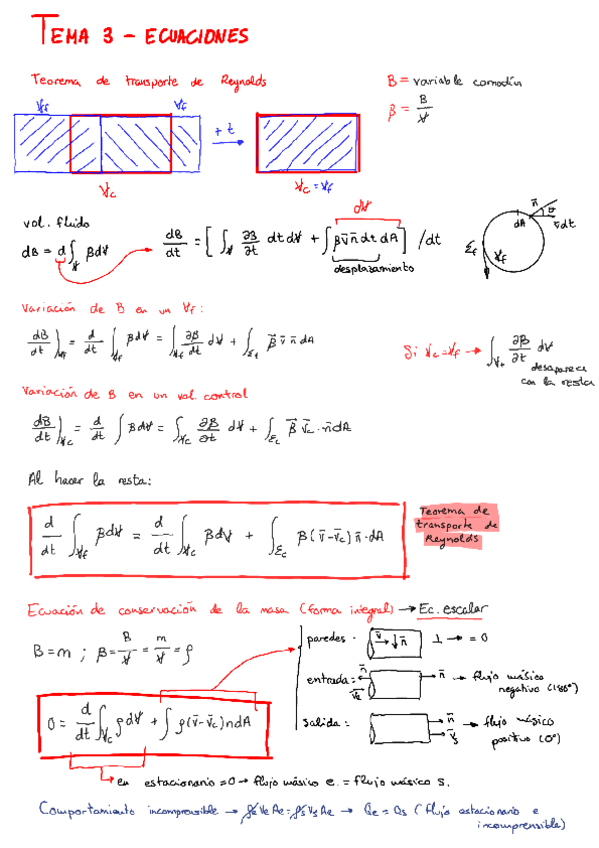 TEMA 3 - ECUACIONES
Teorema de transporte de Reynolds
B = variable comodín
β = B/V
Vf Vf
+ t
Vc
Vc = Vf
vol. fluido
dB = d∫_V β dV
dV
dB/dt = [ ∫_V ∂B/∂t dt dV + ∫ β v̄ n̄ dt dA ] /dt
desplazamiento
n̄
θ
dA
v̄dt
Σf
Vf
Variación de B en un Vf:
dB/dt)_Vf = d/dt ∫_Vf β dV = ∫_Vf ∂β/dt dV + ∫_Σf β̄ v̄ n̄ dA
Si Vc = Vf → ∫_V* ∂β/∂t dV
desaparece
con la resta
Variación de B en un vol. control
dB/dt)_Vc = d/dt ∫ β dV = ∫_Vc ∂β/∂t dV + ∫_Σc β̄ v̄c · n̄ dA
Al hacer la resta:
d/dt ∫_Vf β dV = d/dt ∫_Vc β dV + ∫_Σc β (v̄ - v̄c) n̄ · dA
Teorema de
transporte de
Reynolds
Ecuación de conservación de la masa (forma integral) → Ec. escalar
B = m ; β = B/V = m/V = ρ
paredes · v̄ ↓ n̄ ⊥ → = 0
entrada: n̄ v̄e → n̄ → flujo másico
negativo (180°)
0 = d/dt ∫_Vc ρ dV + ∫ ρ (v̄ - v̄c) n dA
salida: n̄ v̄s → flujo másico
positivo (0°)
en estacionario = 0 → flujo másico e. = flujo másico s.
Comportamiento incomprensible → ρe Ve Ae = ρs Vs Ae → Qe = Qs (flujo estacionario e
incomprensible)